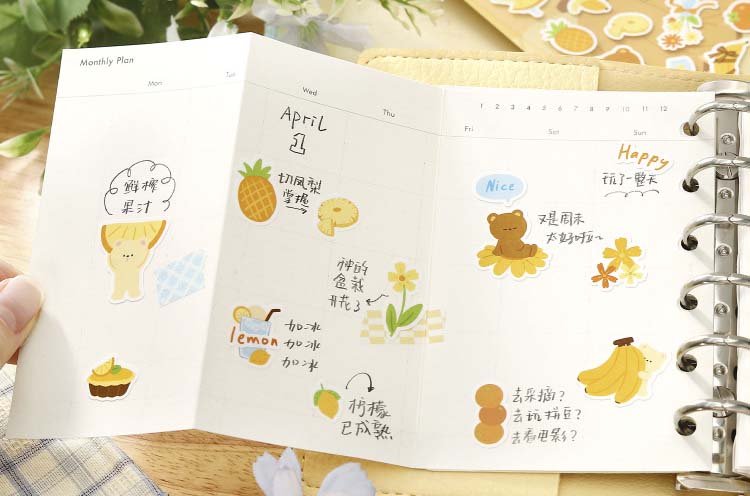 Monthly Plan
Mon
Tue
Wed
Thu
1 2 3 4 5 6 7 8 9 10 11 12
Fri
Sat
Sun
April
1
鮮榨
果汁
切鳳梨
掌握
Nice
又是周末
太好啦~
Happy
玩了一整天
神的
盆栽
开花了
lemon
加冰
加冰
加冰
柠檬
已成熟
去采摘?
去玩拼豆?
去看电影?